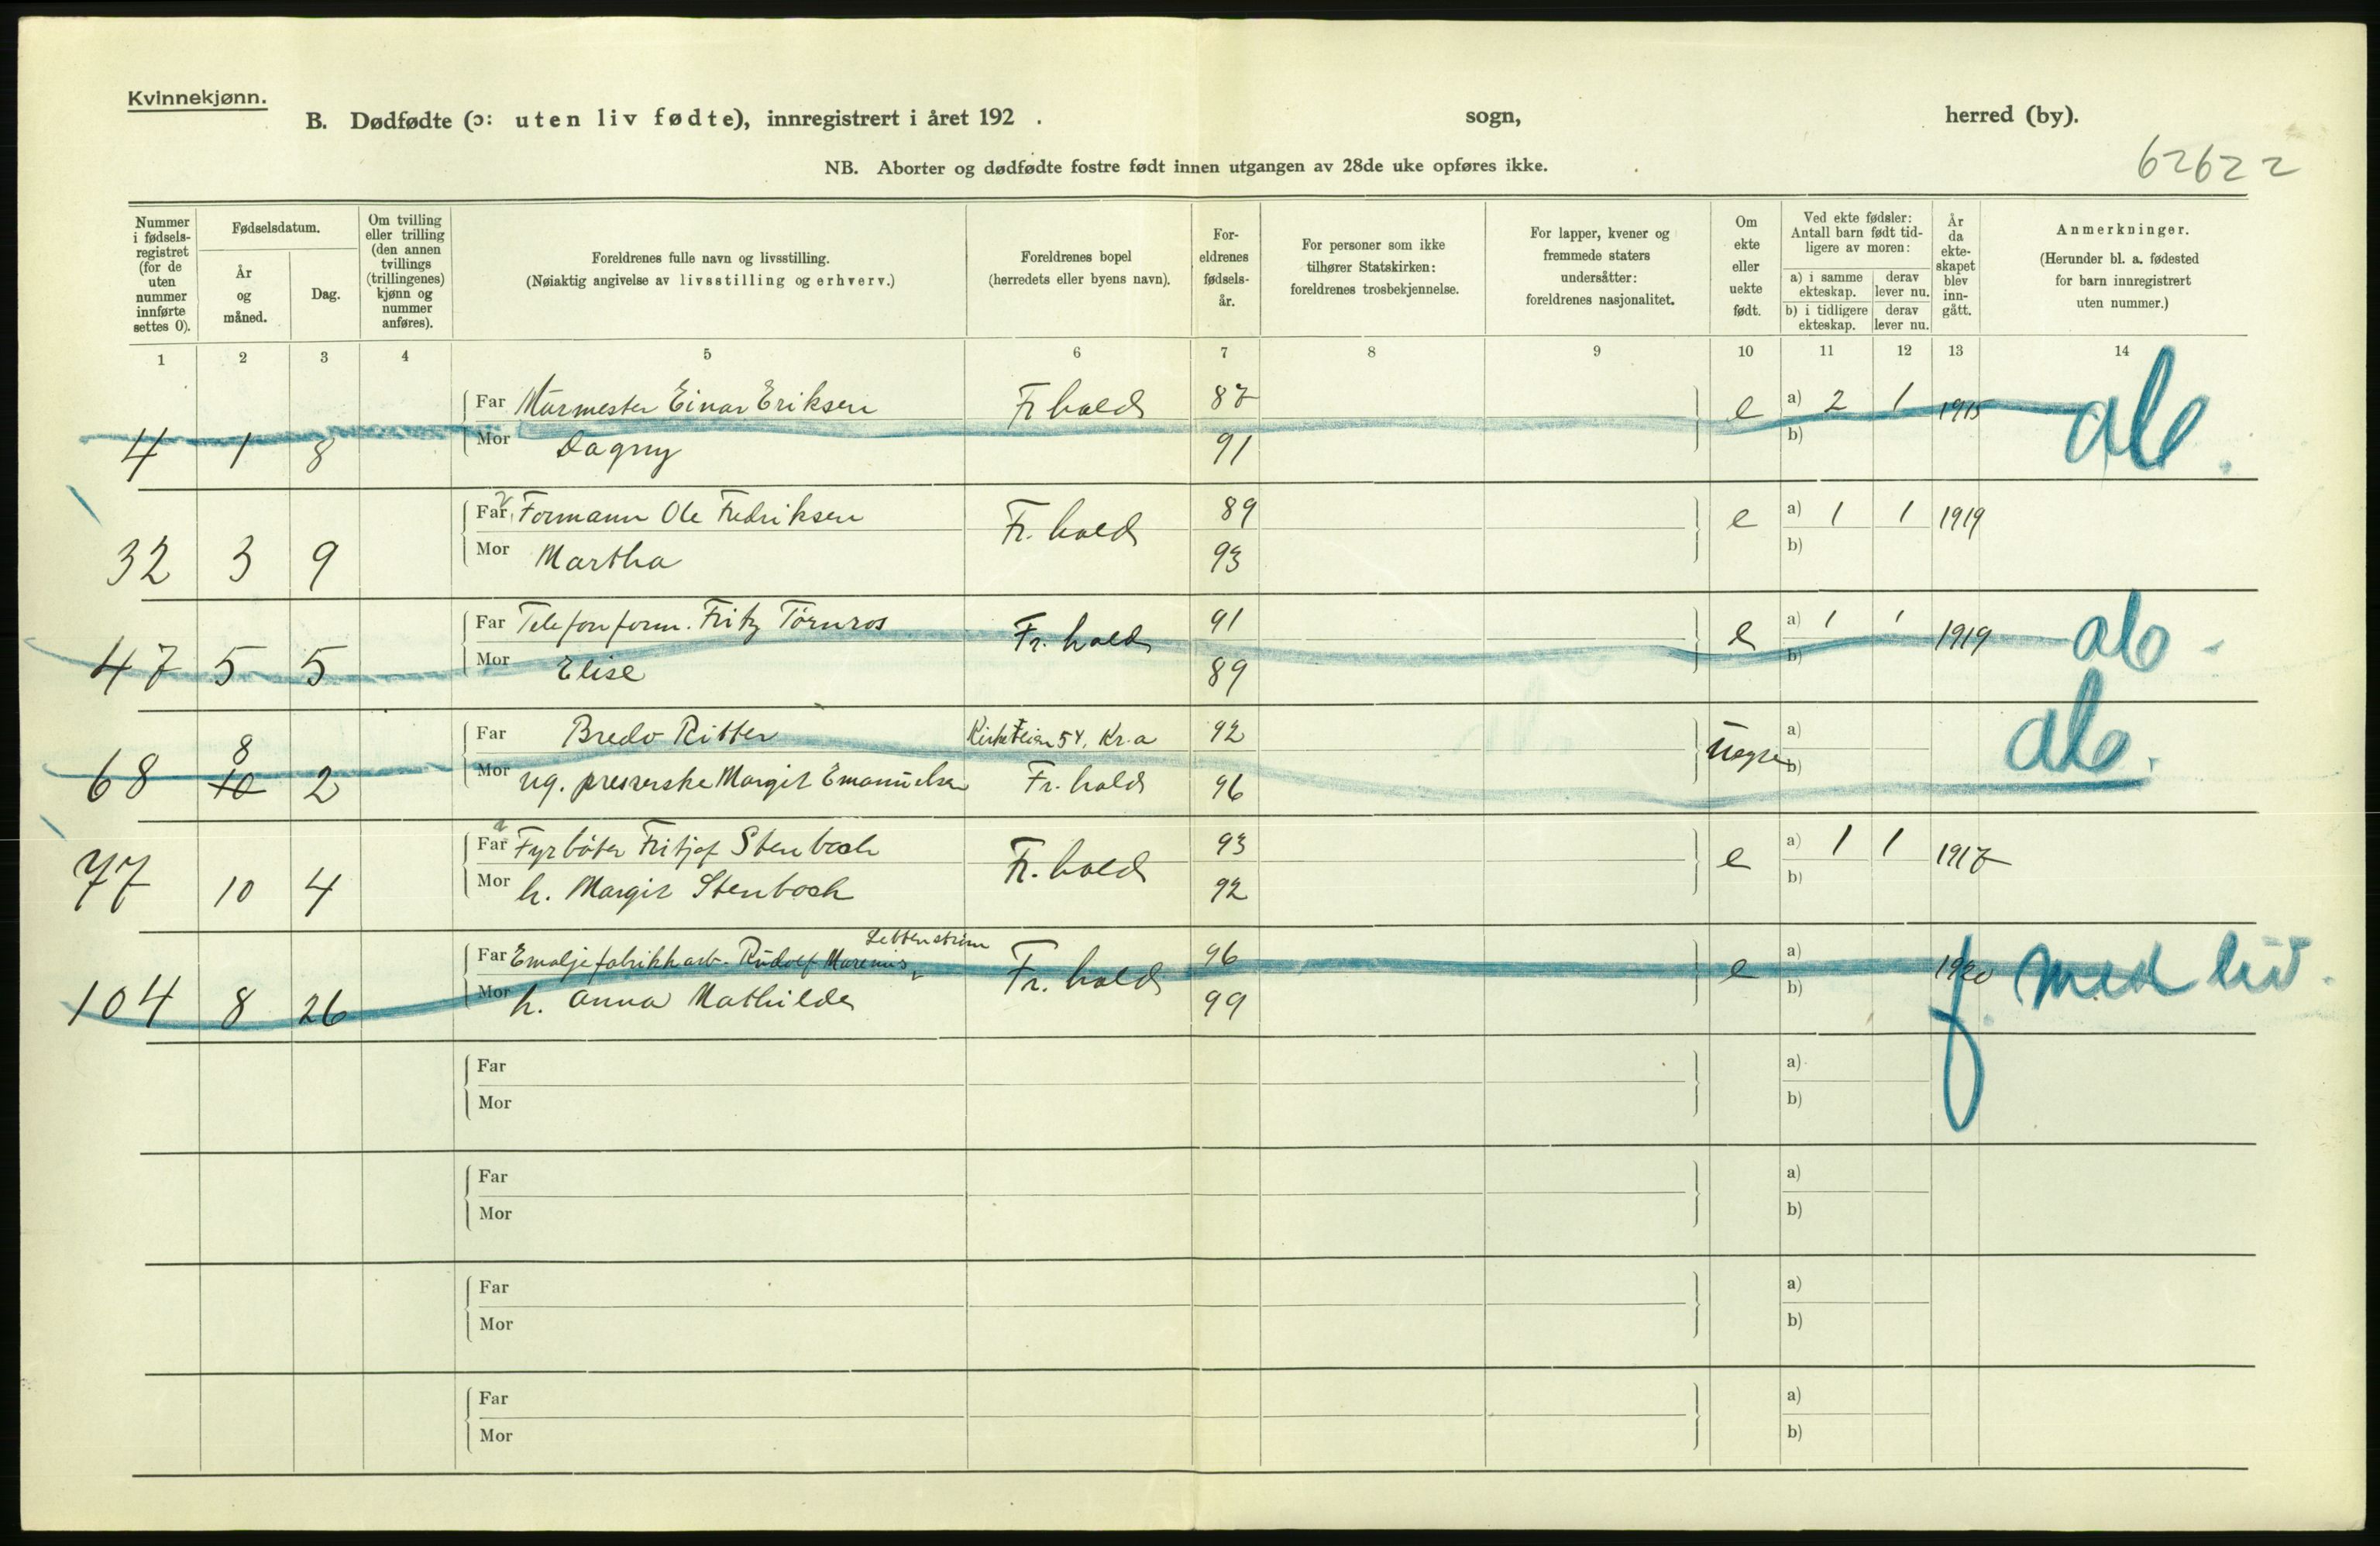 Kvinnekjønn.
B. Dødfødte (ɔ: uten liv fødte), innregistrert i året 192 . sogn, herred (by).
NB. Aborter og dødfødte fostre født innen utgangen av 28de uke opføres ikke.
62622
Nummer i fødsels-registret (for de uten nummer innførte settes 0).
Fødselsdatum.
År og måned.
Dag.
Om tvilling eller trilling (den annen tvillings (trillingenes) kjønn og nummer anføres).
Foreldrenes fulle navn og livsstilling.
(Nøiaktig angivelse av livsstilling og erhverv.)
Foreldrenes bopel
(herredets eller byens navn).
For-eldrenes fødsels-år.
For personer som ikke tilhører Statskirken: foreldrenes trosbekjennelse.
For lapper, kvener og fremmede staters undersåtter: foreldrenes nasjonalitet.
Om ekte eller uekte født.
Ved ekte fødsler: Antall barn født tid-ligere av moren:
a) i samme ekteskap. derav lever nu.
b) i tidligere ekteskap. derav lever nu.
År da ekte-skapet blev inn-gått.
Anmerkninger.
(Herunder bl. a. fødested for barn innregistrert uten nummer.)
1 2 3 4 5 6 7 8 9 10 11 12 13 14
Far Murmester Einar Eriksen Fr hald 87 e a) 2 1 1915 ab.
4 1 8 Mor Dagny 91 b)
Far Formann Ole Fredriksen Fr. hald 89 e a) 1 1 1919
32 3 9 Mor Martha 93 b)
Far Telefonform. Fritz Törnros Fr. hald 91 e a) 1 1 1919 ab.
47 5 5 Mor Elise 89 b)
Far Bredo Ritter Kirkeveien 54, Kr.a 92 Uegte a) ab.
68 8 10 2 Mor ug. presserske Margit Emanuelsen Fr. hald 96 b)
Far Fyrbøter Fritjof Stenbock Fr. hald 93 e a) 1 1 1917
77 10 4 Mor h. Margit Stenbock 92 b)
Far Emaljefabrikkarb. Rudolf Marenius Fr. hald 96 e a) 1920 f. med liv.
104 8 26 Mor h. Anna Mathilde 99 b)
Far a)
Mor b)
Far a)
Mor b)
Far a)
Mor b)
Far a)
Mor b)